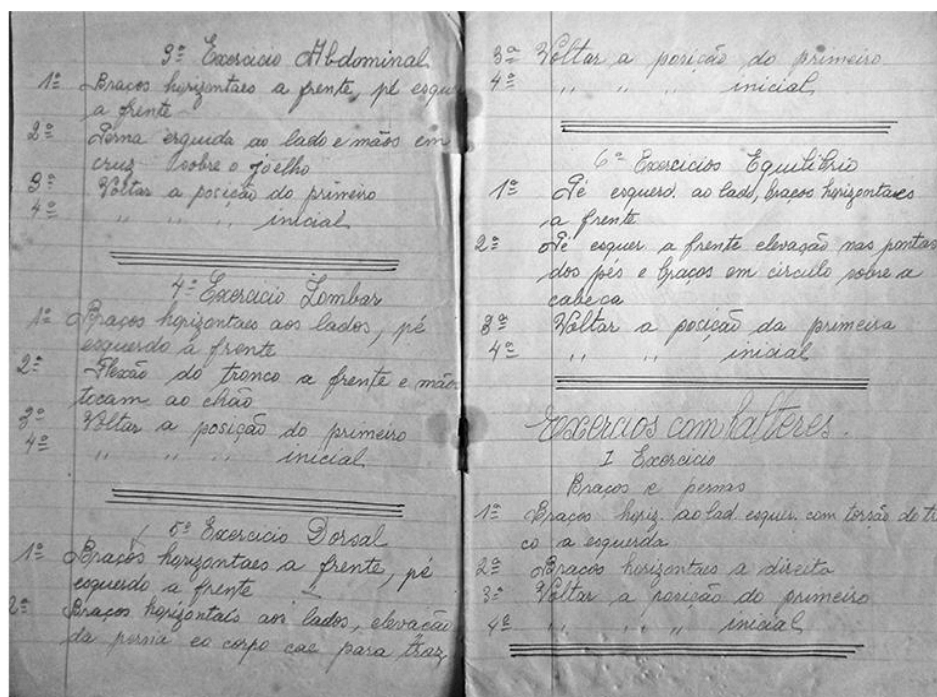 3º Exercicio Abdominal
1º Braços horizontaes a frente, pé esqu
a frente
2º Perna erguida ao lado e mãos em
cruz sobre o joelho
3º Voltar a posição do primeiro
4º " " " inicial
4º Exercicio Lombar
1º Braços horizontaes aos lados, pé
esquerdo a frente
2º Flexão do tronco a frente e mão
tocam ao chão
3º Voltar a posição do primeiro
4º " " " inicial
5º Exercicio Dorsal
1º Braços horizontaes a frente, pé
esquerdo a frente
2º Braços horizontais aos lados, elevação
da perna e o corpo cae para traz
3º Voltar a posição do primeiro
4º " " " inicial
6º Exercicios Equilibrio
1º Pé esquerd. ao lad, braços horizontaes
a frente
2º Pé esquer a frente elevação nas pontas
dos pés e braços em circulo sobre a
cabeca
3º Voltar a posição da primeira
4º " " inicial
Exercios com halteres.
I Exercicio
Braços e pernas
1º Braços horiz. ao lad. esquer. com torsão do tr
co a esquerda
2º Braços horizontaes a direita
3º Voltar a posição do primeiro
4º " " " inicial